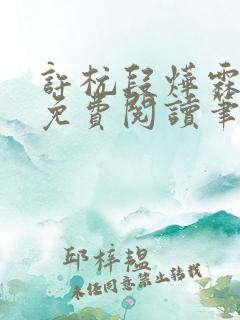 許杭段燁霖
免費閱讀筆
邱梓韞
未經同意禁止轉載